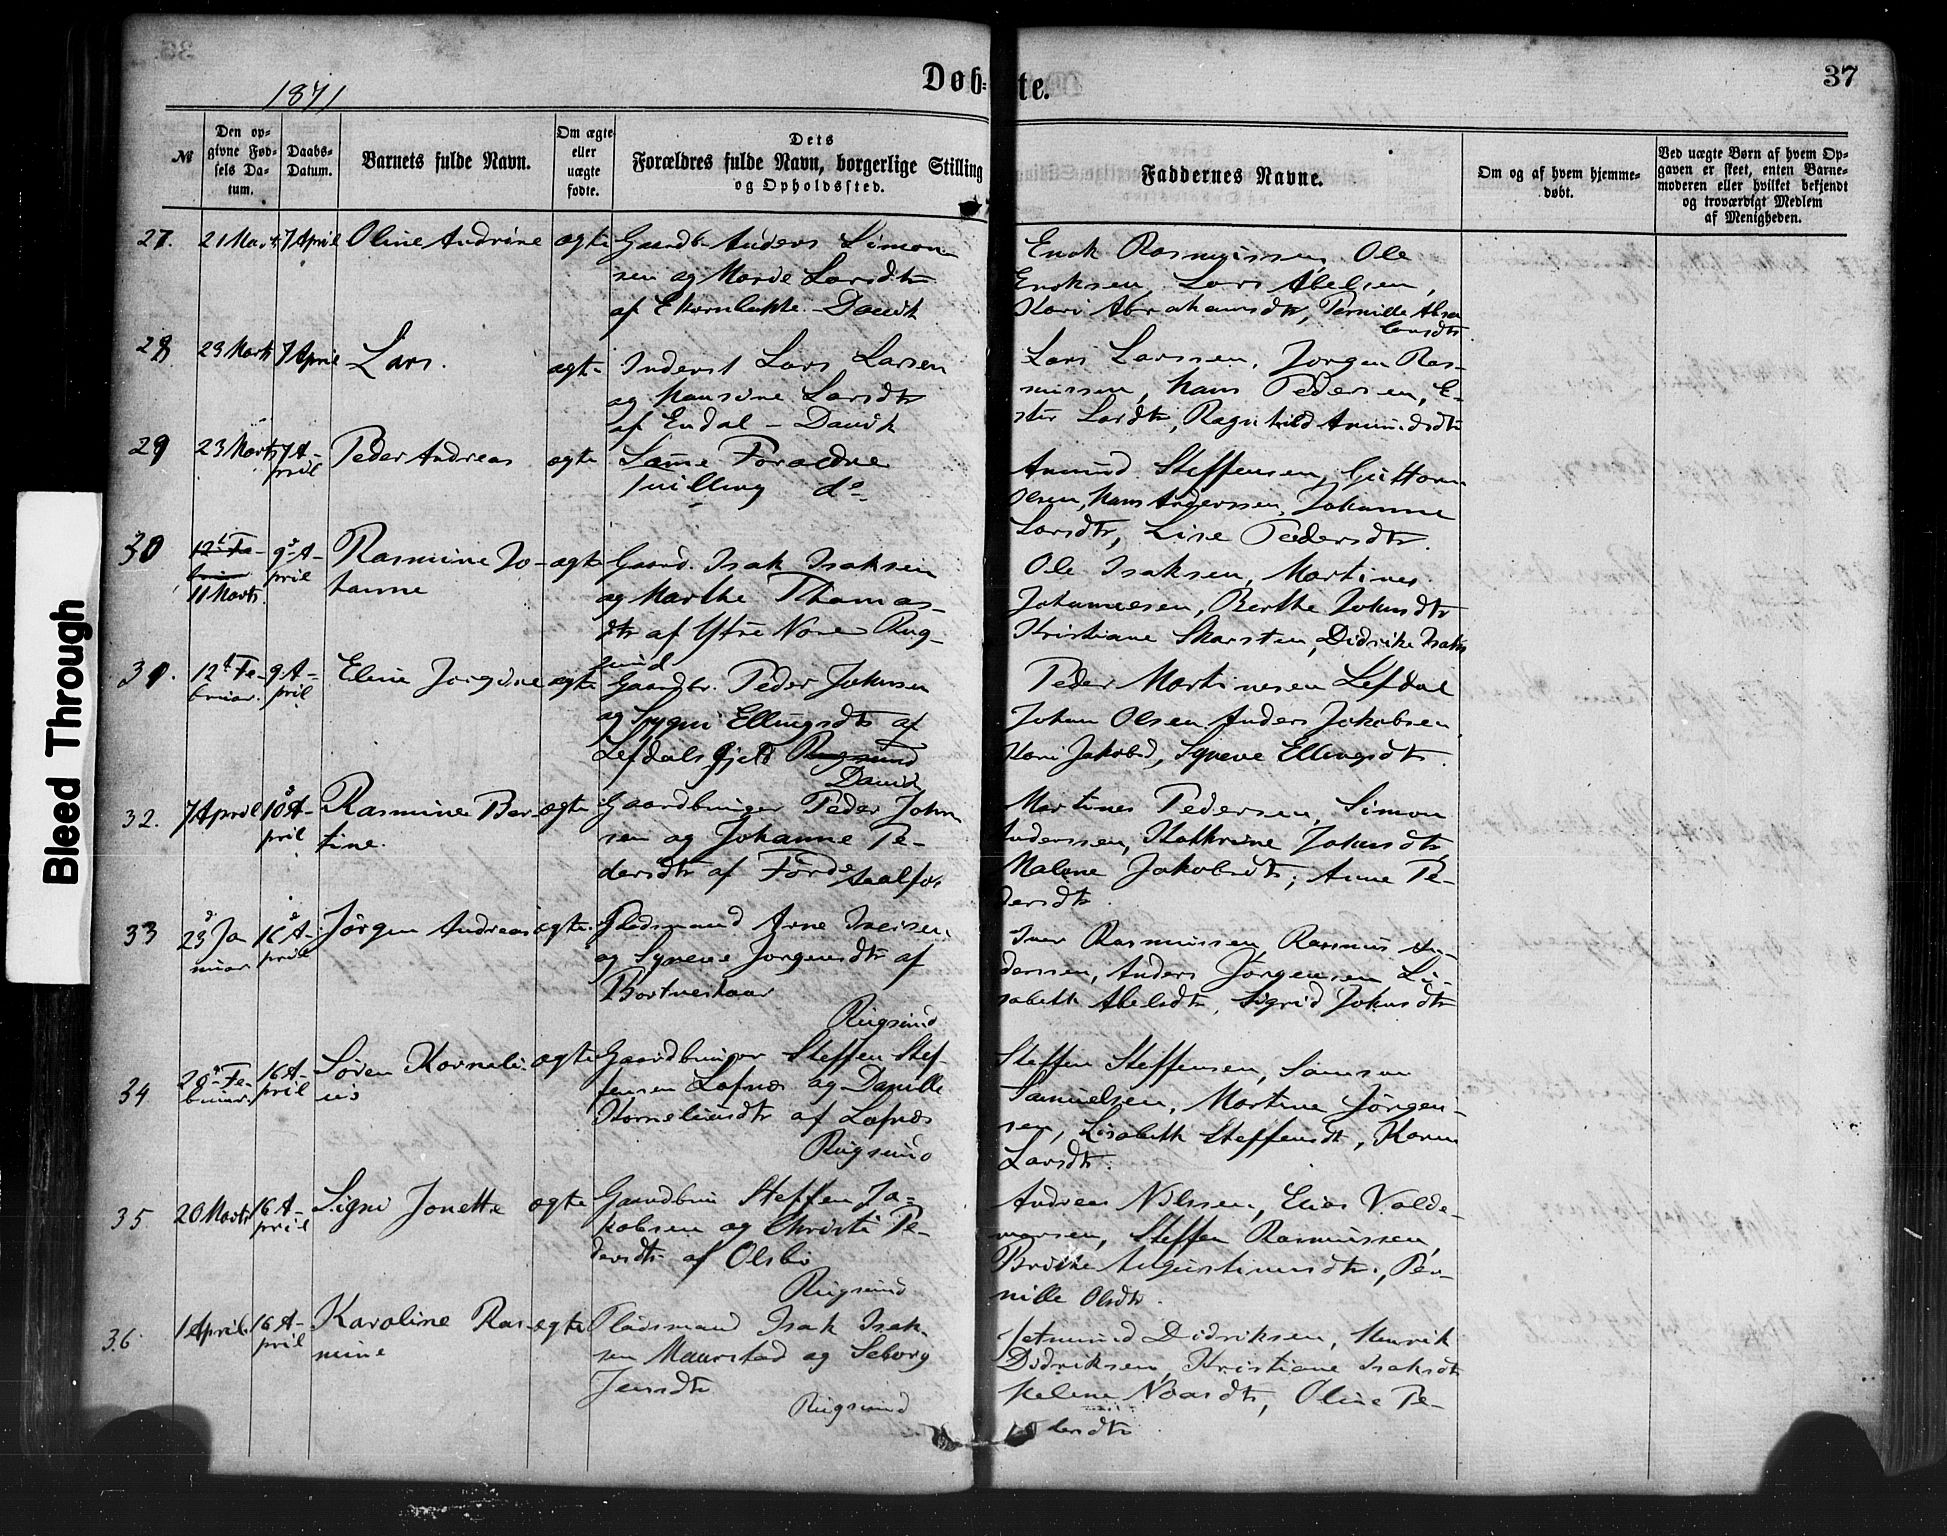 37
Døb-te.
1871
№
Den op-
givne Fød-
sels Da-
tum.
Daabs-
Datum.
Barnets fulde Navn.
Om ægte
eller
uægte
fødte.
Dets
Forældres fulde Navn, borgerlige Stilling
og Opholdssted.
Faddernes Navne.
Om og af hvem hjemme-
døbt.
Ved uægte Børn af hvem Op-
gaven er skeet, enten Barne-
moderen eller hvilket bekjendt
og troværdigt Medlem
af Menigheden.
27. 21 Marts 7 April Oline Andrine ægte Gaardb. Anders Simon-
sen og Larsdtr
af - Davik
Rasmussen, Ole
Lars Abelsen,
Kari Abrahamsdtr, Pernille Absa-
lonsdtr
28 23 Marts 7 April Lars. ægte Inderst Lars Larsen
og Hansine Larsdtr
af Endal - Davik
Lars Larssen, Jørgen Ras-
mussen, Hans Pedersen, E-
ster Larsdtr, Ragnhild Amundsdtr
29 23 Marts 7 A-
pril
Peder Andreas ægte Samme Forældre
Tvilling do
Amund Steffensen, Guttorm
Olsen, Hans Anderssen, Johanne
Larsdtr, Lise Pedersdtr.
30 12t Fe-
bruar
11 Marts.
9d A-
pril
Rasmine Jo-
hanne
ægte Gaard. Isak Isaksen
og Marthe Thomas-
dtr af Ytre Nore Rug-
sund
Ole Isaksen, Martines
Johannesen, Berthe Johnsdtr
Kristiane Skarsten, Didrike Isaks
31. 12t Fe-
bruar.
9 A-
pril
Eline Jørgine ægte Gaardbr. Peder Johnsen
og Sygni Ellingsdtr af
Lefdalsgjeld Rugsund
Davik
Peder Martinesen Lefdal
Johan Olsen Anders Jakobsen
Kari Jakobsd, Syneve Ellingsdtr.
32. 7 April 10d A-
pril
Rasmine Ber-
tine.
ægte Gaardbruger Peder John-
sen og Johanne Pe-
dersdtr af Førde Aalfot
Martines Pedersen, Simon
Anderssen, Kathrine Johnsdtr
Malene Jakobsdtr, Anne Pe-
dersdtr.
33 23d Ja-
nuar
16d A-
pril
Jørgen Andreas ægte. Pladsmand Arne Iversen
og Syneve Jørgensdtr af
Rugsund
Iver Rasmussen, Rasmus An-
derssen, Anders Jørgensen Li-
sabeth Abelsdtr, Sigrid Johnsdtr
34 28d Fe-
bruar.
16 A-
pril
Søren Korneli-
us
ægte Gaardbruger Steffen Stef-
fensen Lofnes og Danille
Korneliusdtr af Lofnes
Rugsund
Steffen Steffensen, Samson
Samuelsen, Martine Jørgen-
sen, Lisabeth Steffensdt, Karen
Larsdtr.
35 20 Marts 16 A-
pril
Signi Jonette ægte Gaardbru Steffen Ja-
kobsen og Christi Pe-
dersdtr af Olsbø
Rugsund
Andreas Nilssen, Elias Valde-
marsen, Steffen Rasmussen,
Brithe Augustinusdtr., Per-
nille Olsdtr.
36 1 April. 16 A-
pril
Karoline Ras-
mine
ægte Pladsmand Isak Isak-
sen Maurstad og Seborg
Jensdtr
Rugsund
Jetmund Didriksen, Henrik
Didriksen, Kristiane Isaksdtr
Helene Nilsdtr, Oline Pe-
dersdtr
Bleed Through